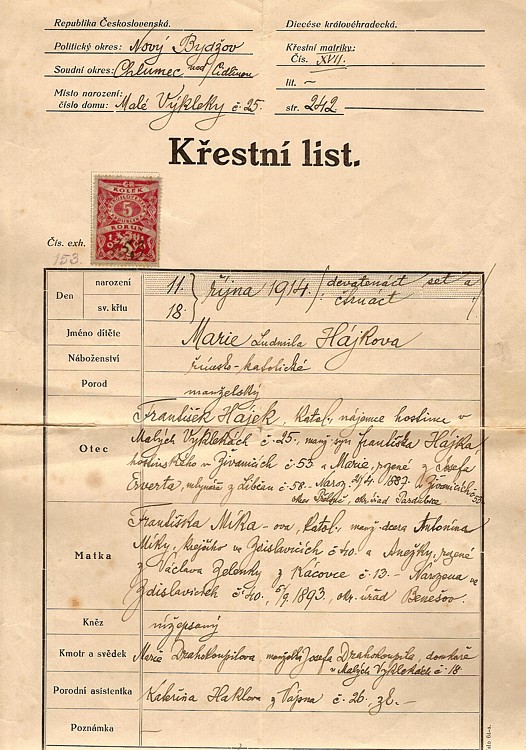 Republika Československá.
Politický okres: Nový Bydžov
Soudní okres: Chlumec nad Cidlinou
Místo narození:
číslo domu: Malé Výkleky č. 25.
Diecése královéhradecká.
Křestní matriky:
Čís. XVII.
lit. —
str. 242
Křestní list.
KOLEK
5
KORUN
Čís. exh.
153.
Den
narození
sv. křtu
11.
18.
října 1914. (devatenáct set a
čtrnáct)
Jméno dítěte
Marie Ludmila Hájkova
Náboženství
římsko-katolické
Porod
manželský
Otec
František Hájek, katol., nájemce hostince v
Malých Výklekách č. 25., manž. syn Františka Hájka
hostinského v Živanicích č. 53 a Marie, rozené z Josefa
mlynáře z Libčan č. 58.- Naroz. 1887 v Živanicích č. 53
okr. úřad Pardubice
Matka
Františka Mika-ova, katol., manž. dcera Antonína
Miky, krejčího ve Zdislavicích č. 40. a Anežky, rozené
z Václava Zelenky z Kácovce č. 13.- Narozena ve
Zdislavicích č. 40., 5/9. 1893, okr. úřad Benešov.
Kněz
nížepsaný
Kmotr a svědek
Marie Drahokoupilova, manželka Josefa Drahokoupila, domkáře
v Malých Výklekách č. 18
Porodní asistentka
Kateřina Haklova z Vápna č. 26., zk. —
Poznámka
—